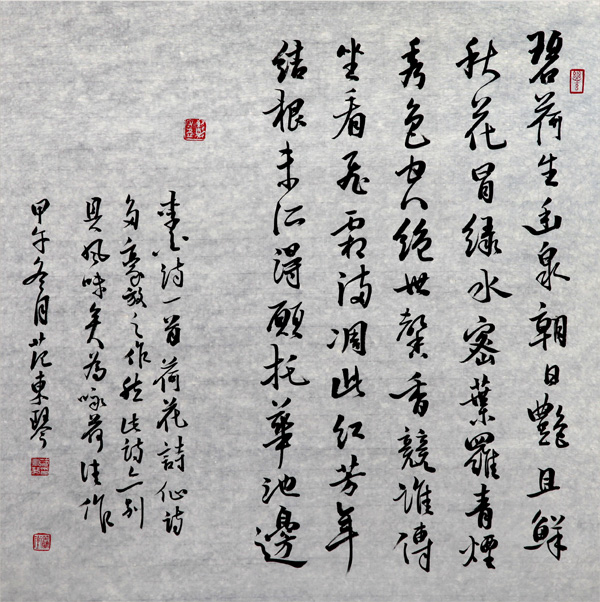 碧荷生幽泉朝日艷且鮮
秋花冒绿水密葉羅青煙
秀色空絶世馨香競誰傳
坐看飛霜滿凋此紅芳年
結根未所得願托華池邊
李白詩一首荷花詩他詩
多豪放之作然此詩亦别
具風味矣為咏荷佳作
甲午冬月范東琴